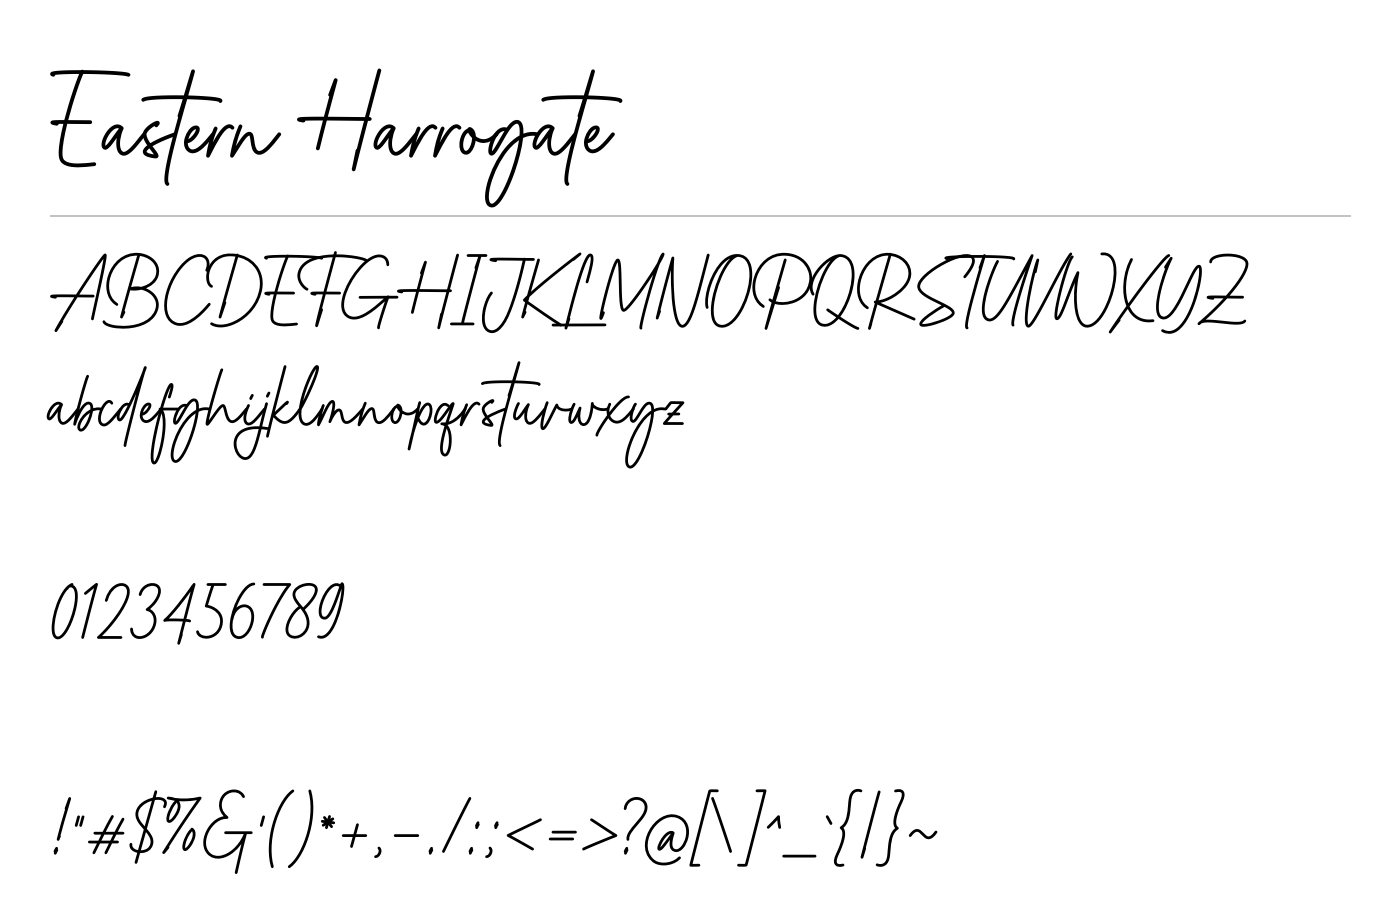 Eastern Harrogate
ABCDEFGHIJKLMNOPQRSTUVWXYZ
abcdefghijklmnopqrstuvwxyz
0123456789
!"#$%&'()*+,-./:;<=>?@[\]^_`{|}~